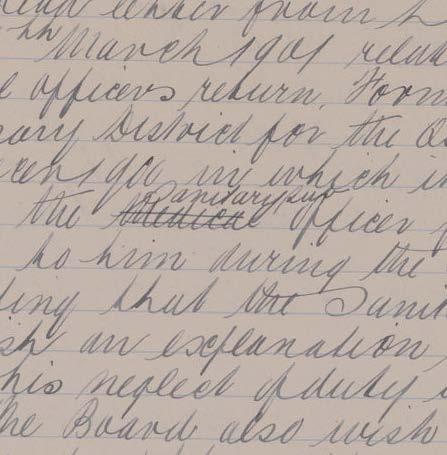 read letter from L
th March 1901 relat
l officers return, Form
sary District for the Qu
cer 1900 in which i
Sanitary sub
the Medical officer f
to him during the
ting that the Sanit
sh an explanation,
his neglect of duty i
The Board also wish